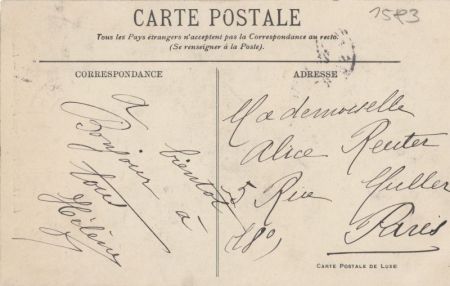 CARTE POSTALE
1583
Tous les Pays étrangers n'acceptent pas la Correspondance au recto.
(Se renseigner à la Poste).
CORRESPONDANCE
à bientôt
Bonjour à
tous
Hélène
ADRESSE
Mademoiselle
Alice Reuter
5 Rue Muller
(18e)
Paris
CARTE POSTALE DE LUXE